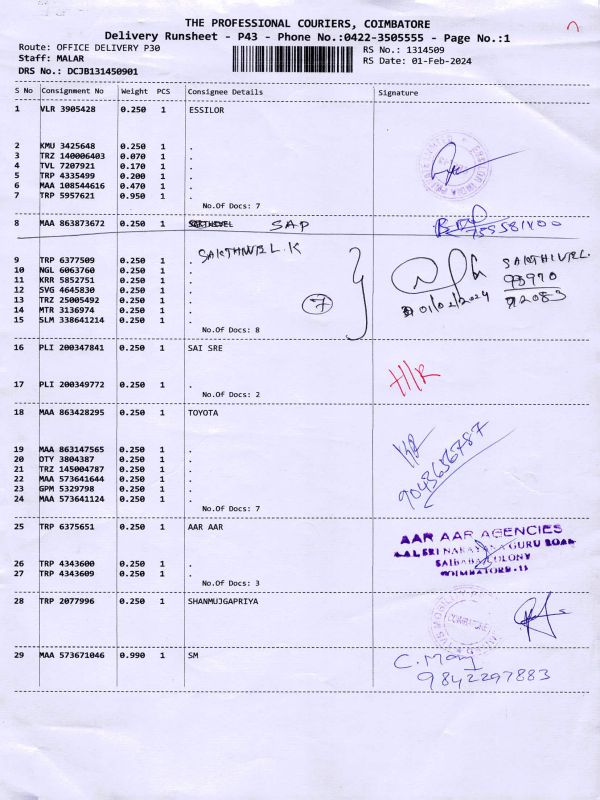 THE PROFESSIONAL COURIERS, COIMBATORE
Delivery Runsheet - P43 - Phone No.:0422-3505555 - Page No.:1
Route: OFFICE DELIVERY P30
RS No.: 1314509
Staff: MALAR
RS Date: 01-Feb-2024
DRS No.: DCJB131450901
S No Consignment No Weight PCS Consignee Details Signature
1 VLR 3905428 0.250 1 ESSILOR
2 KMU 3425648 0.250 1 .
3 TRZ 140006403 0.070 1 .
4 TVL 7207921 0.170 1 .
5 TRP 4335499 0.200 1 .
6 MAA 108544616 0.470 1 .
7 TRP 5957621 0.950 1 .
No.Of Docs: 7
8 MAA 863873672 0.250 1 SAP
SAKTHIVEL.K
9 TRP 6377509 0.250 1 .
SAKTHIVEL.
10 NGL 6063760 0.250 1 .
11 KRR 5852751 0.250 1 .
93970
12 SVG 4645830 0.250 1 .
13 TRZ 25005492 0.250 1 .
7
01/02/2024
92083
14 MTR 3136974 0.250 1 .
15 SLM 338641214 0.250 1 .
No.Of Docs: 8
16 PLI 200347841 0.250 1 SAI SRE
H/R
17 PLI 200349772 0.250 1 .
No.Of Docs: 2
18 MAA 863428295 0.250 1 TOYOTA
19 MAA 863147565 0.250 1 .
20 DTY 3804387 0.250 1 .
21 TRZ 145004787 0.250 1 .
22 MAA 573641644 0.250 1 .
23 GPM 5329798 0.250 1 .
24 MAA 573641124 0.250 1 .
9048656787
No.Of Docs: 7
25 TRP 6375651 0.250 1 AAR AAR
AAR AAR AGENCIES
GURU ROAD
SAIBABA COLONY
COIMBATORE-11
26 TRP 4343600 0.250 1 .
27 TRP 4343609 0.250 1 .
No.Of Docs: 3
28 TRP 2077996 0.250 1 SHANMUJGAPRIYA
COIMBATORE
29 MAA 573671046 0.990 1 SM
C. Mary
9842297883